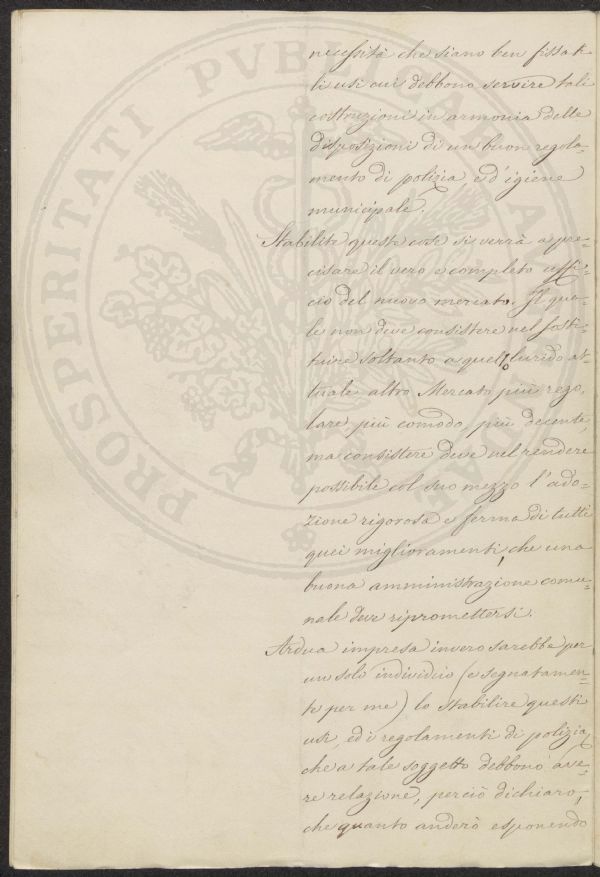 necessità che siano ben fissati
li usi cui debbono servire tali
costruzioni in armonia delle
disposizioni di un buon regola-
mento di polizia e d'igiene
municipale.
Stabilite queste cose si verrà a pre-
cisare il vero e completo uffi-
cio del nuovo mercato. Il qua-
le non deve consistere nel sosti-
tuire soltanto a quello lurido at-
tuale altro Mercato più rego-
lare, più comodo, più decente,
ma consistere deve nel rendere
possibile col suo mezzo l'ado-
zione rigorosa e ferma di tutti
quei miglioramenti, che una
buona amministrazione comu-
nale deve ripromettersi.
Ardua impresa invero sarebbe per
un solo individuo (e segnatamen-
te per me) lo stabilire questi
usi, ed i regolamenti di polizia,
che a tale soggetto debbono ave-
re relazione, perciò dichiaro,
che quanto anderò esponendo
PROSPERITATI PVBL